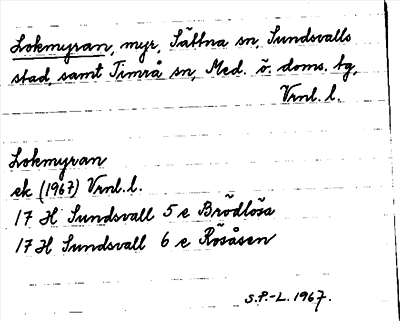 Lokmyran, myr, Sättna sn, Sundsvalls
stad, samt Timrå sn, Med. ö. doms. tg,
Vrnl. l.
Lokmyran
ek (1967) Vrnl. l.
17 H Sundsvall 5 e Brödlösa
17 H Sundsvall 6 e Rösåsen
S.P.-L. 1967.